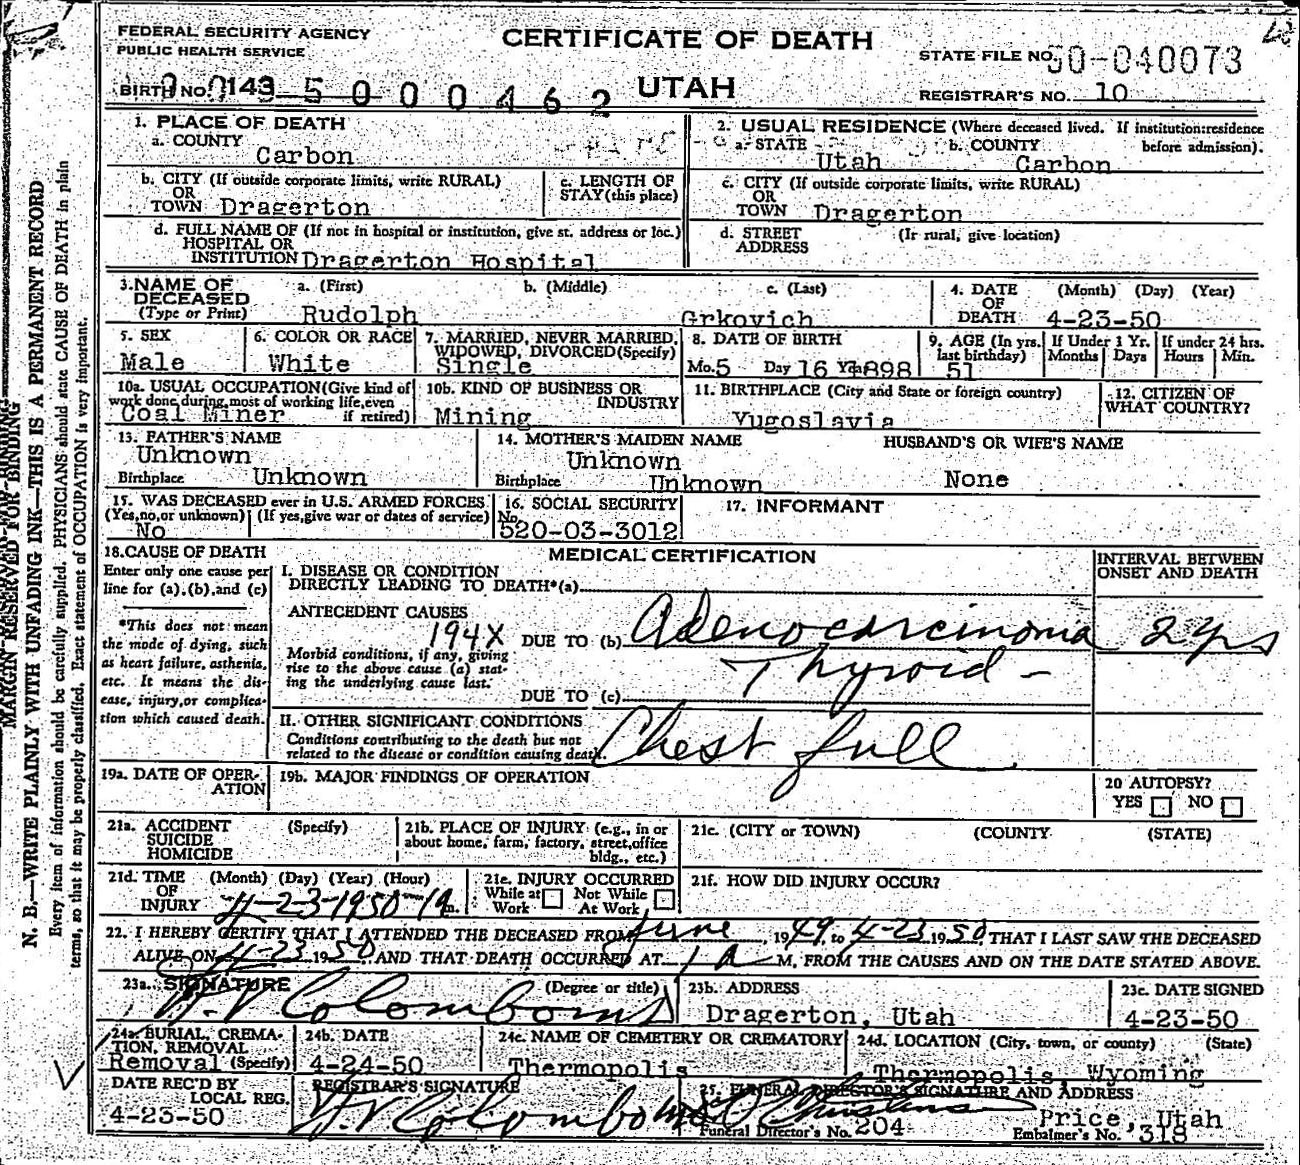 FEDERAL SECURITY AGENCY
PUBLIC HEALTH SERVICE
CERTIFICATE OF DEATH
UTAH
STATE FILE NO. 50-040073
REGISTRAR'S NO. 10
BIRTH NO. 143 5000462
1. PLACE OF DEATH
a. COUNTY Carbon
2. USUAL RESIDENCE (Where deceased lived. If institution:residence before admission).
a. STATE Utah b. COUNTY Carbon
b. CITY (If outside corporate limits, write RURAL)
OR
TOWN Dragerton
c. LENGTH OF
STAY (this place)
c. CITY (If outside corporate limits, write RURAL)
OR
TOWN Dragerton
d. FULL NAME OF (If not in hospital or institution, give st. address or loc.)
HOSPITAL OR
INSTITUTION Dragerton Hospital
d. STREET (If rural, give location)
ADDRESS
3. NAME OF DECEASED (Type or Print)
a. (First) b. (Middle) c. (Last)
Rudolph Grkovich
4. DATE OF DEATH (Month) (Day) (Year)
4-23-50
5. SEX
Male
6. COLOR OR RACE
White
7. MARRIED, NEVER MARRIED, WIDOWED, DIVORCED (Specify)
Single
8. DATE OF BIRTH
Mo. 5 Day 16 Yr. 1898
9. AGE (In yrs. last birthday)
51
If Under 1 Yr. Months Days
If under 24 hrs. Hours Min.
10a. USUAL OCCUPATION (Give kind of work done during most of working life, even if retired)
Coal Miner
10b. KIND OF BUSINESS OR INDUSTRY
Mining
11. BIRTHPLACE (City and State or foreign country)
Yugoslavia
12. CITIZEN OF WHAT COUNTRY?
13. FATHER'S NAME
Unknown
Birthplace Unknown
14. MOTHER'S MAIDEN NAME
Unknown
Birthplace Unknown
HUSBAND'S OR WIFE'S NAME
None
15. WAS DECEASED ever in U.S. ARMED FORCES
(Yes,no,or unknown) (If yes,give war or dates of service)
No
16. SOCIAL SECURITY No.
520-03-3012
17. INFORMANT
18. CAUSE OF DEATH
Enter only one cause per line for (a),(b),and (c)
*This does not mean the mode of dying, such as heart failure, asthenia, etc. It means the disease, injury,or complication which caused death.
MEDICAL CERTIFICATION
INTERVAL BETWEEN ONSET AND DEATH
I. DISEASE OR CONDITION
DIRECTLY LEADING TO DEATH*(a)
ANTECEDENT CAUSES
194X DUE TO (b) Adenocarcinoma 2 yrs
Thyroid -
Morbid conditions, if any, giving rise to the above cause (a) stating the underlying cause last.
DUE TO (c)
II. OTHER SIGNIFICANT CONDITIONS
Conditions contributing to the death but not related to the disease or condition causing death.
Chest full
19a. DATE OF OPERATION
19b. MAJOR FINDINGS OF OPERATION
20 AUTOPSY?
YES NO
21a. ACCIDENT (Specify)
SUICIDE
HOMICIDE
21b. PLACE OF INJURY (e.g., in or about home, farm, factory, street,office bldg., etc.)
21c. (CITY or TOWN) (COUNTY) (STATE)
21d. TIME (Month) (Day) (Year) (Hour)
OF
INJURY 4-23-1950-1a m.
21e. INJURY OCCURRED
While at Work Not While At Work
21f. HOW DID INJURY OCCUR?
22. I HEREBY CERTIFY THAT I ATTENDED THE DECEASED FROM June, 1949, to 4-23, 1950, THAT I LAST SAW THE DECEASED
ALIVE ON 4-23, 1950, AND THAT DEATH OCCURRED AT 1 A M, FROM THE CAUSES AND ON THE DATE STATED ABOVE.
23a. SIGNATURE (Degree or title)
23b. ADDRESS
Dragerton, Utah
23c. DATE SIGNED
4-23-50
24a. BURIAL, CREMATION, REMOVAL (Specify)
Removal
24b. DATE
4-24-50
24c. NAME OF CEMETERY OR CREMATORY
Thermopolis
24d. LOCATION (City, town, or county) (State)
Thermopolis, Wyoming
DATE REC'D BY LOCAL REG.
4-23-50
REGISTRAR'S SIGNATURE
25. FUNERAL DIRECTOR'S SIGNATURE AND ADDRESS
Price, Utah
Funeral Director's No. 204
Embalmer's No. 318
MARGIN RESERVED FOR BINDING
N. B.—WRITE PLAINLY WITH UNFADING INK—THIS IS A PERMANENT RECORD
Every item of information should be carefully supplied. PHYSICIANS should state CAUSE OF DEATH in plain
terms, so that it may be properly classified. Exact statement of OCCUPATION is very important.